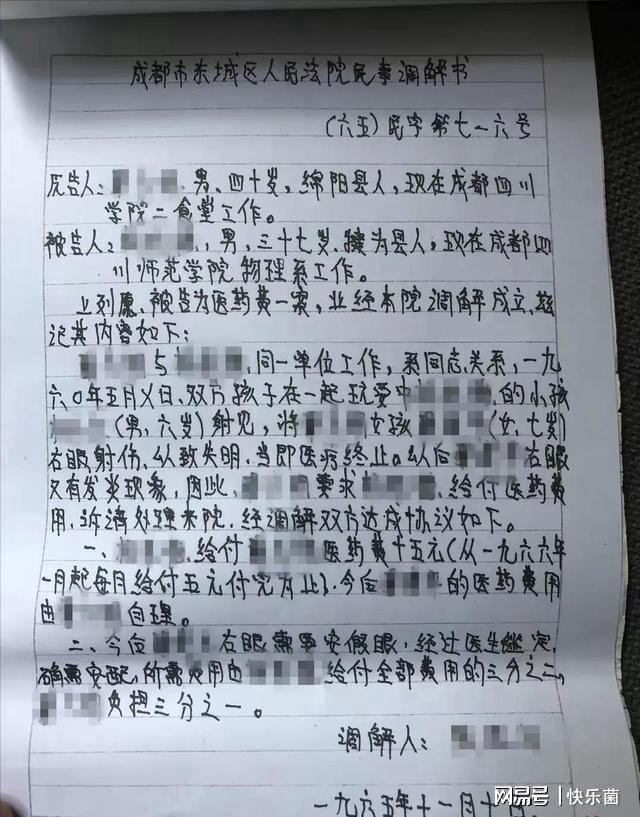 成都市东城区人民法院民事调解书
(六五)民字第七一六号
原告人: 男,四十岁,绵阳县人,现在成都四川
学院二食堂工作。
被告人: ,男,三十七岁,犍为县人,现在成都四
川师范学院物理系工作。
上列原、被告为医药费一案,业经本院调解成立,兹
记其内容如下:
与 同一单位工作,系同志关系,一九
六〇年五月 日,双方孩子在一起玩耍中 的小孩
(男,六岁)射 ,将 女孩 (女,七岁)
右眼射伤,以致失明,当即医疗终止。以后 右眼
又有发炎现象,因此, 要求 给付医药费
用,诉请处理来院,经调解双方达成协议如下。
一、 给付 医药费十五元(从一九六六年
一月起每月给付五元付完为止),今后 的医药费用
由 自理。
二、今后 右眼需要安假眼,经过医生鉴定,
确需安配,所需费用由 给付全部费用的三分之二,
负担三分之一。
调解人:
一九六五年十一月十日
网易号 | 快乐菌